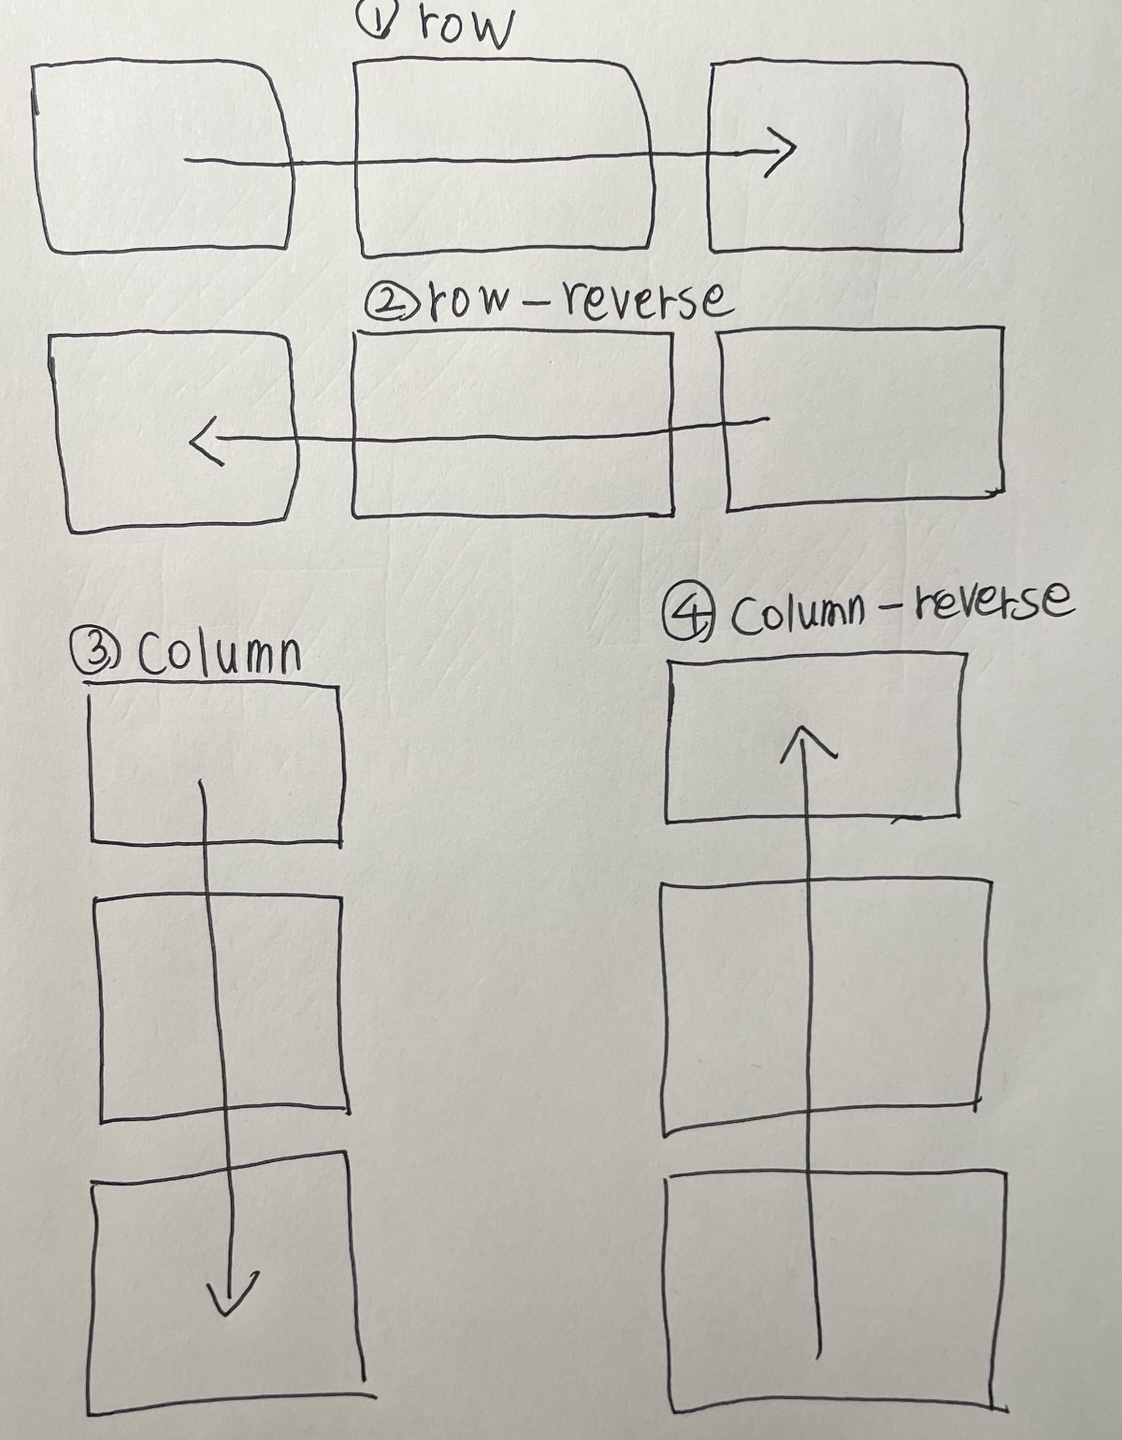 ① row
② row-reverse
③ Column
④ Column-reverse